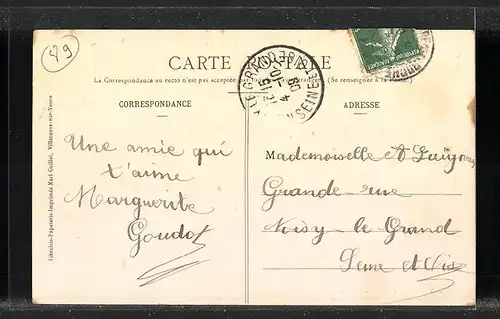 49
CARTE POSTALE
La Correspondance au recto n'est pas acceptée (Se renseigner à la Poste)
CORRESPONDANCE
ADRESSE
Une amie qui
t'aime
Marguerite
Goudot
Mademoiselle A
Grande rue
Noisy-le-Grand
Seine et Oise
Librairie-Papeterie-Imprimerie Karl Guillot, Villeneuve-sur-Yonne